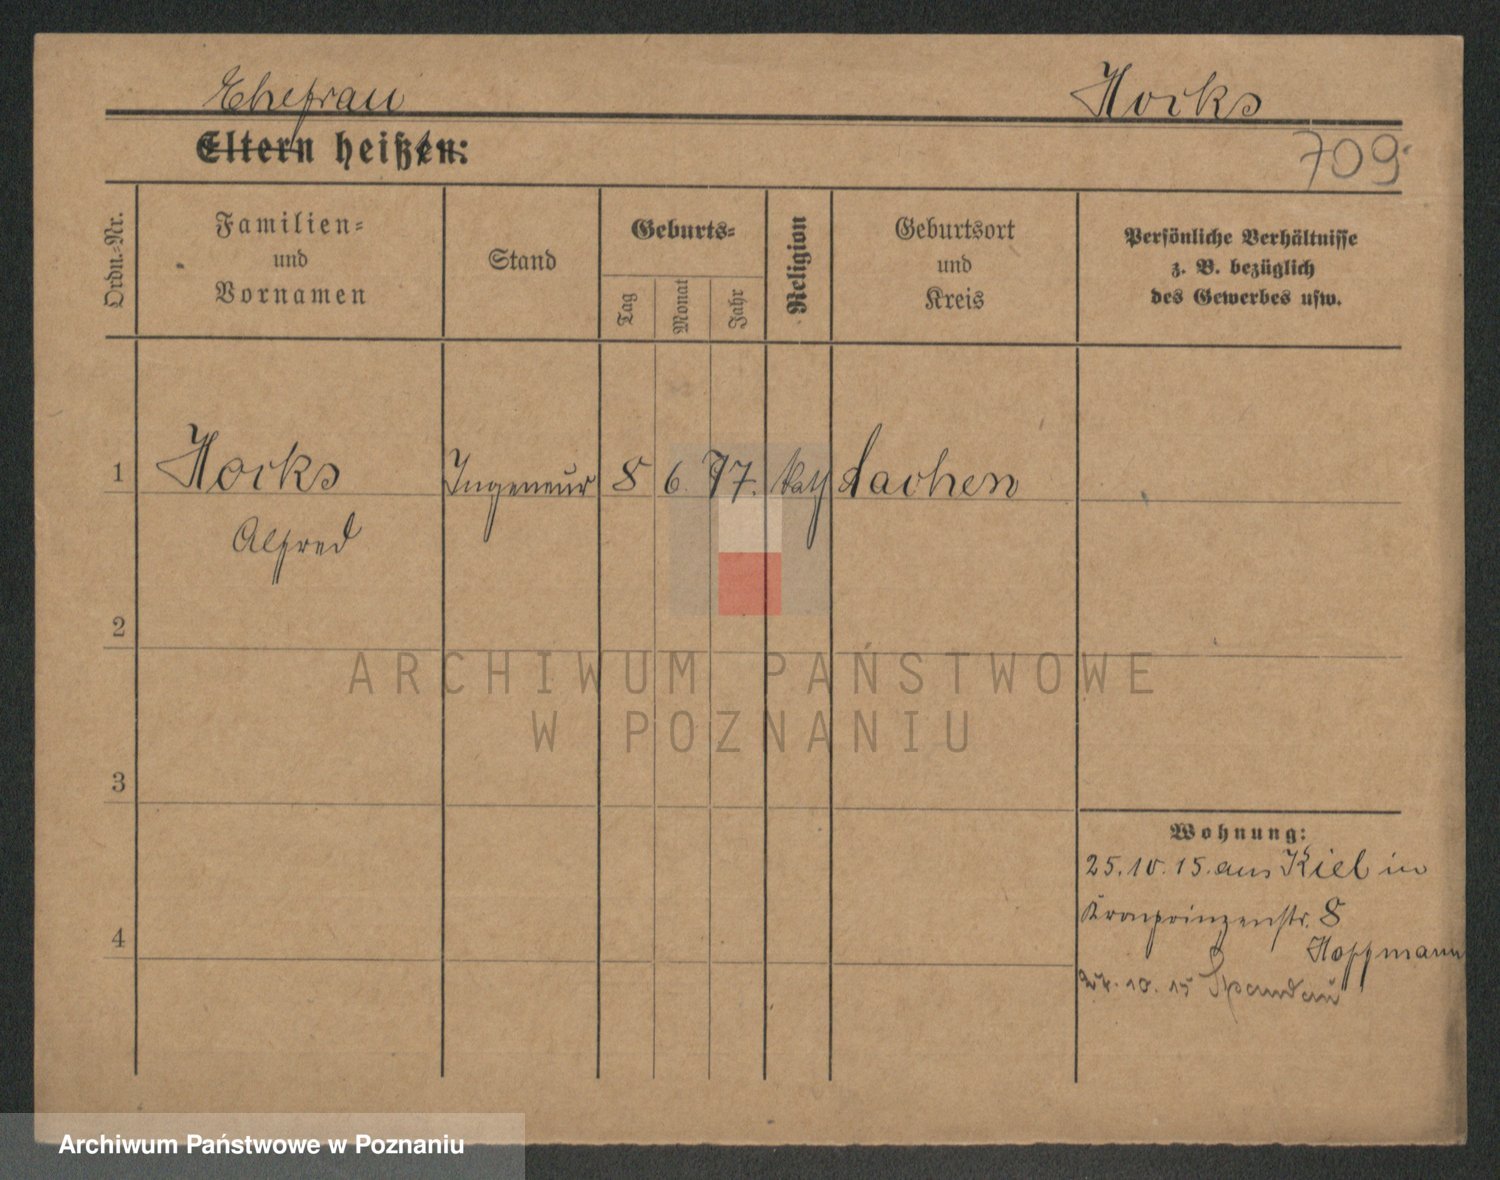 Ehefrau Horks
Eltern heißen:
709
Ordn.-Nr.
Familien-
und
Vornamen
Stand
Geburts-
Tag
Monat
Jahr
Religion
Geburtsort
und
Kreis
Persönliche Verhältnisse
z. B. bezüglich
des Gewerbes usw.
1 Horks Ingeneur 8 6. 77. kath Aachen
Alfred
2
3
4
Wohnung:
25.10.15. aus Kiel in
Kronprinzenstr. 8
Hoffmann
27.10.15 Spandau
ARCHIWUM PAŃSTWOWE
W POZNANIU
Archiwum Państwowe w Poznaniu